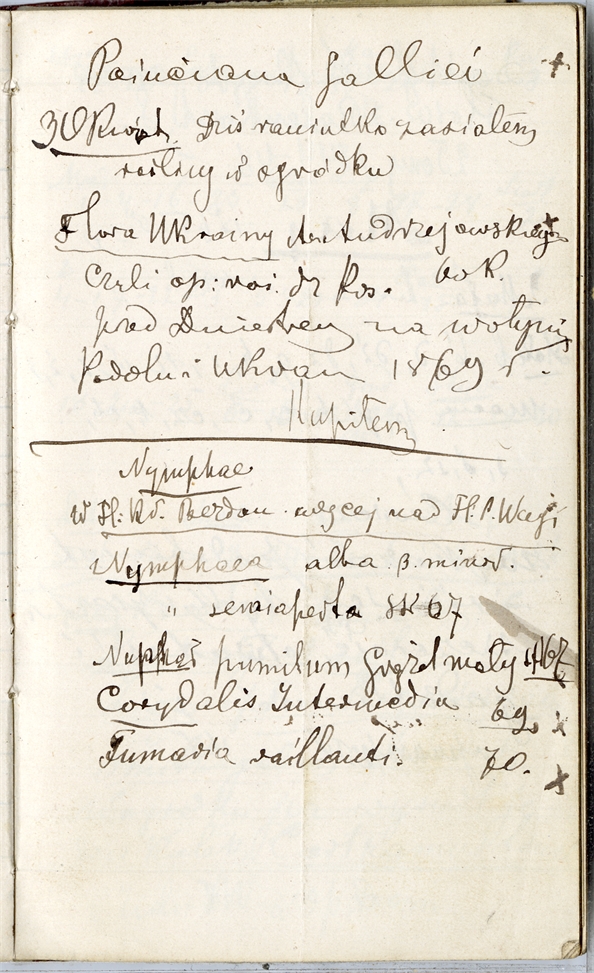 Poinciana Gallici +
30 Kwiet. Dziś raniutko zasiałem
rośliny w ogródku
Flora Ukrainy Ant. Andrzejowskiego x
Czyli op: roś. dz Ros. 60 k.
pzed Dniestrem na Wołyniu
Podolu i Ukrain 1869 r.
Kupiłem
Nymphae
w Fl: Kr. Berdau więcej nad Fl. P. Wagi
Nymphaea alba β. minor.
" semiaperta 67
Nuphar pumilum Grążel mały 67
Corydalis Intermedia 69. x
Fumaria vaillanti. 70. x